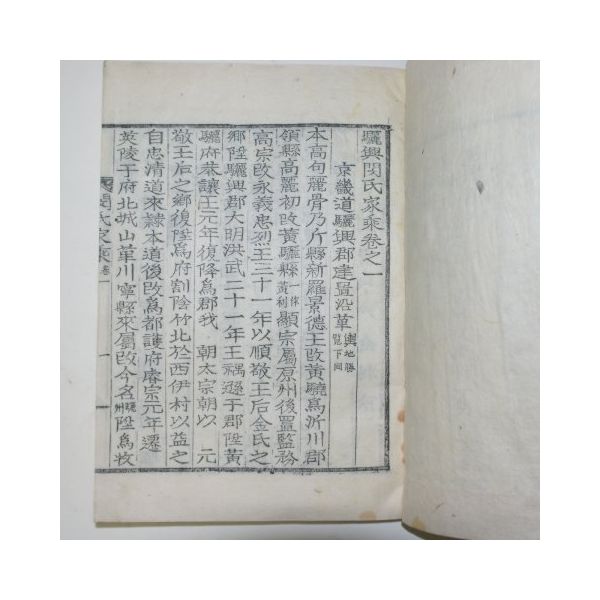 驪興閔氏家乘卷之一
京畿道驪興郡建置沿革 輿地勝覽下同
本高句麗骨乃斤縣新羅景德王改黃驍爲沂川郡
領縣高麗初改黃驪縣 一作黃利 顯宗屬原州後置監務
高宗改永義忠烈王三十一年以順敬王后金氏之
鄉陞驪興郡大明洪武二十一年王禑遜于郡陞黃
驪府恭讓王元年復降爲郡我 朝太宗朝以 元
敬王后之鄉復陞爲府割陰竹北於西伊村以益之
自忠清道來隷本道後改爲都護府睿宗元年遷
英陵于府北城山革川寧縣來屬改今名 驪州 陞爲牧
閔氏家乘 卷一 一